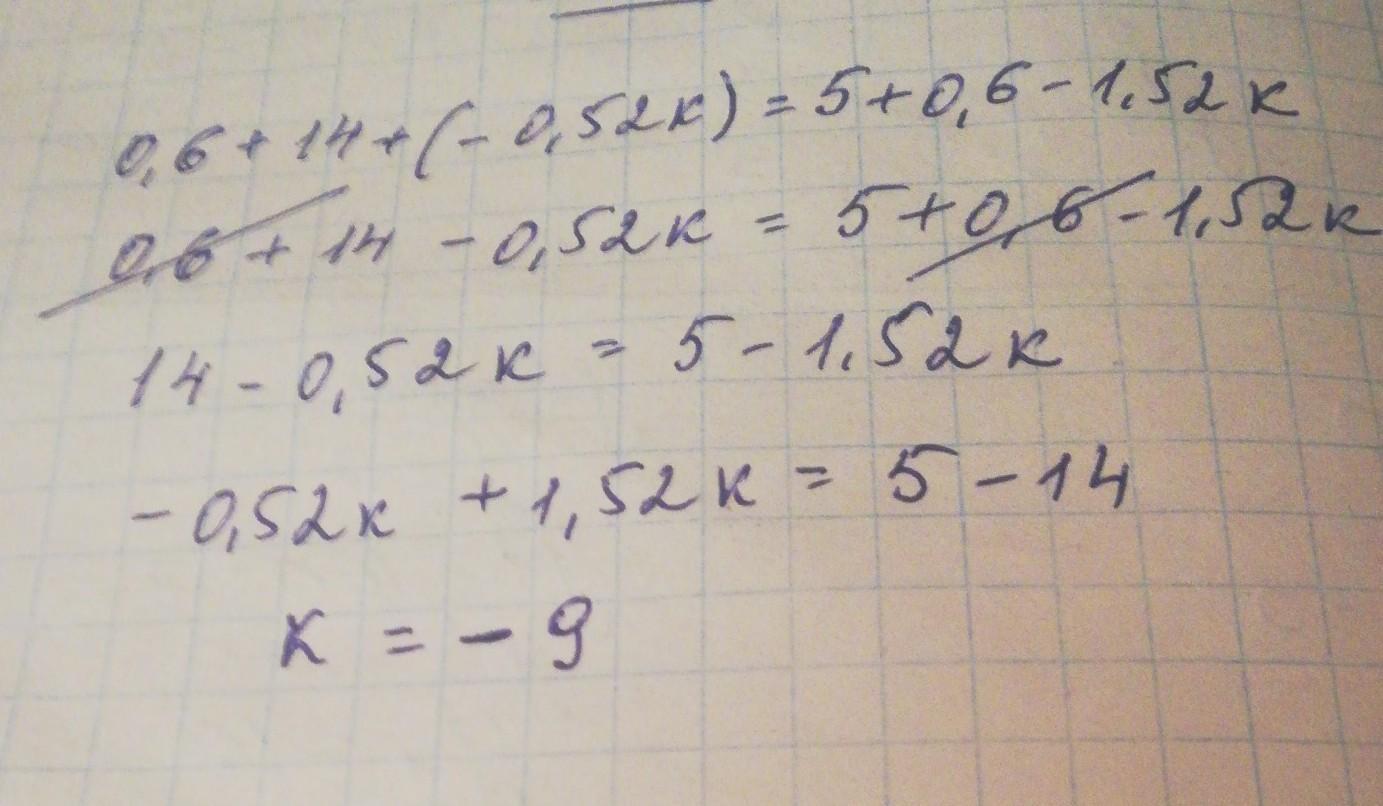 0,6 + 14 + (- 0,52к) = 5 + 0,6 - 1.52к
0,6 + 14 - 0,52к = 5 + 0,6 - 1,52к
14 - 0,52к = 5 - 1.52к
- 0,52к + 1,52к = 5 - 14
к = - 9